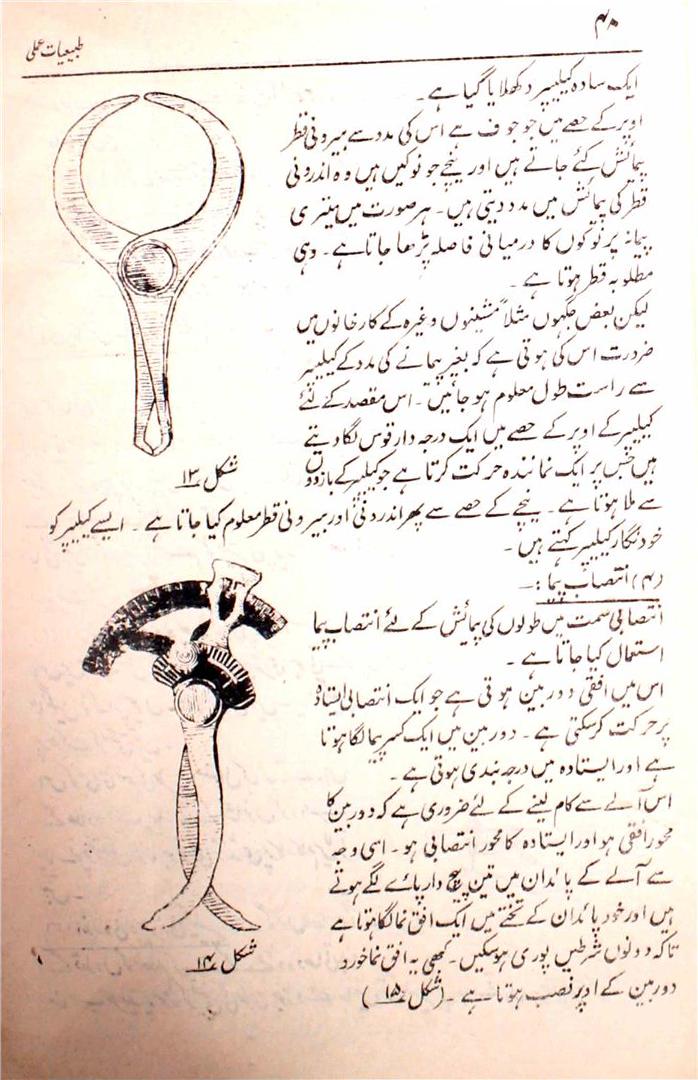 ۴۰
طبیعیات عملی
ایک سادہ کیلیپر دکھلایا گیا ہے۔
اوپر کے حصے میں جو جوف ہے اس کی مدد سے بیرونی قطر
پیمائش کئے جاتے ہیں اور نیچے جو نوکیں ہیں وہ اندرونی
قطر کی پیمائش میں مدد دیتی ہیں۔ ہر صورت میں میتری
پیمانہ پر نوکوں کا درمیانی فاصلہ پڑھا جاتا ہے۔ وہی
مطلوبہ قطر ہوتا ہے۔
لیکن بعض جگہوں مثلاً مشینوں وغیرہ کے کارخانوں میں
ضرورت اس کی ہوتی ہے کہ بغیر پیمانے کی مدد کے کیلیپر
سے راست طول معلوم ہو جائیں۔ اس مقصد کے لئے
کیلیپر کے اوپر کے حصے میں ایک درجہ دار قوس لگا دیتے
ہیں جس پر ایک نمائندہ حرکت کرتا ہے جو کیلیپر کے بازووں
سے ملا ہوتا ہے۔ نیچے کے حصے سے پھر اندرونی اور بیرونی قطر معلوم کیا جاتا ہے۔ ایسے کیلیپر کو
خود نگار کیلیپر کہتے ہیں۔
شکل ۱۳
(۴) انتصاب پیما :۔
انتصابی سمت میں طولوں کی پیمائش کے لئے انتصاب پیما
استعمال کیا جاتا ہے۔
اس میں افقی دوربین ہوتی ہے جو ایک انتصابی ایستادہ
پر حرکت کرسکتی ہے۔ دوربین میں ایک کسر پیما لگا ہوتا
ہے اور ایستادہ میں درجہ بندی ہوتی ہے۔
اس آلے سے کام لینے کے لئے ضروری ہے کہ دوربین کا
محور افقی ہو اور ایستادہ کا محور انتصابی ہو۔ اسی وجہ
سے آلے کے پائدان میں تین پیچ دار پائے لگے ہوتے
ہیں اور خود پائدان کے تختے میں ایک افق نما لگا ہوتا ہے
تاکہ دونوں شرطیں پوری ہوسکیں۔ کبھی یہ افق نما خود
دوربین کے اوپر نصب ہوتا ہے۔ (شکل ۱۵)
شکل ۱۴